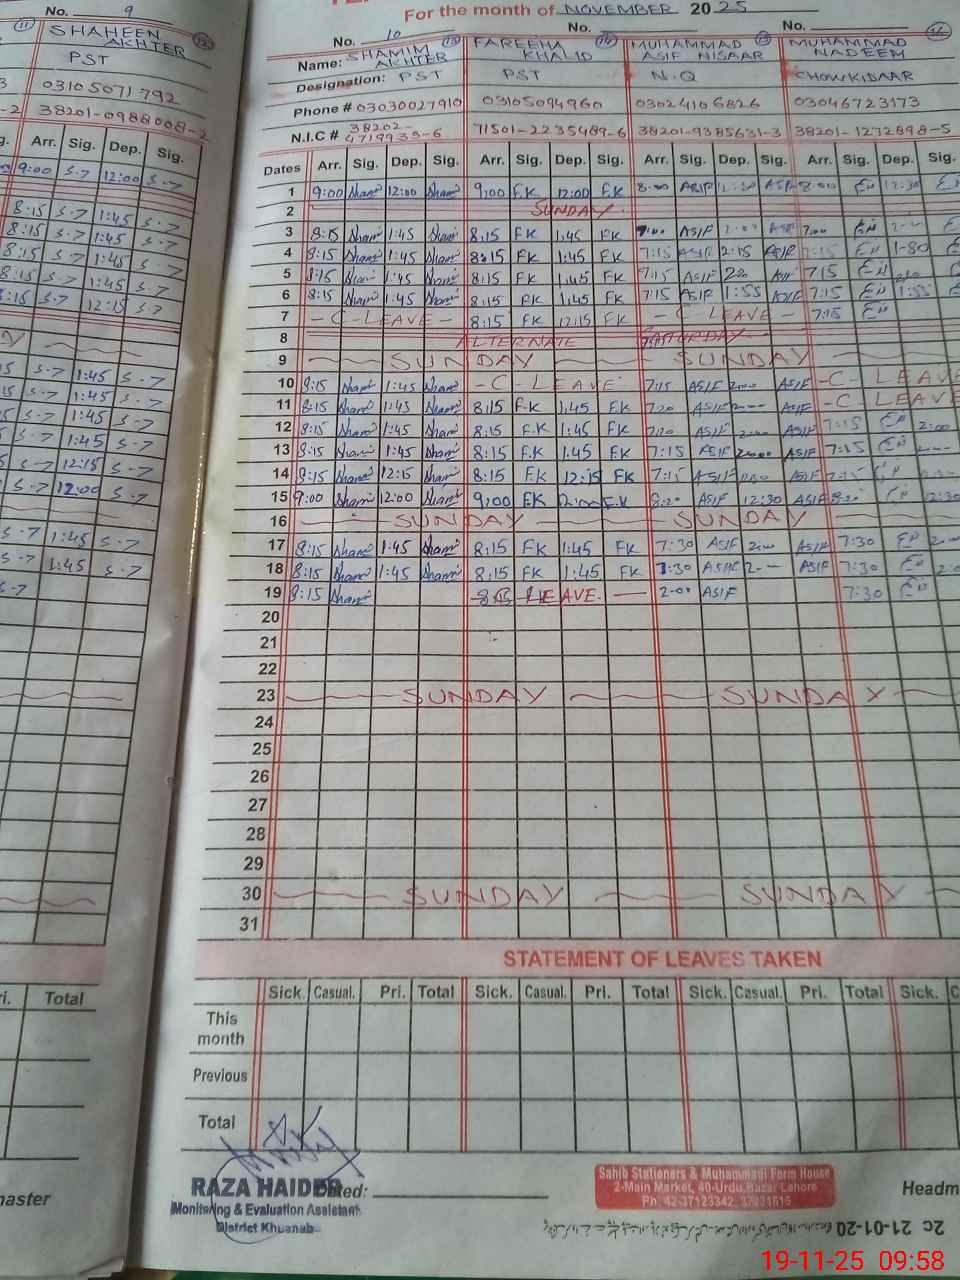 No. 9
SHAHEEN AKHTER
PST
03105071792
38201-0988008-2
Arr. Sig. Dep. Sig.
9:00 S.7 12:00 S.7
8:15 S.7 1:45 S.7
8:15 S.7 1:45 S.7
8:15 S.7 1:45 S.7
8:15 S.7 1:45 S.7
8:15 S.7 12:15 S.7
S.7 1:45 S.7
S.7 1:45 S.7
S.7 1:45 S.7
S.7 1:45 S.7
S.7 12:15 S.7
S.7 12:00 S.7
S.7 1:45 S.7
S.7 1:45 S.7
S.7
Total
For the month of NOVEMBER 2025
No. 10 No. No.
Name: SHAMIM AKHTER FAREEHA KHALID MUHAMMAD ASIF NISAAR MUHAMMAD NADEEM
Designation: PST PST N.Q CHOWKIDAAR
Phone # 03030027910 03105094960 03024106826 03046723173
N.I.C # 38202-4719935-6 71501-2235489-6 38201-9385631-3 38201-1272898-5
Dates Arr. Sig. Dep. Sig. Arr. Sig. Dep. Sig. Arr. Sig. Dep. Sig. Arr. Sig. Dep. Sig.
1 9:00 Sham 12:00 Sham 9:00 F.K 12:00 F.K 8:00 ASIF 12:30 ASIF 8:00 12:30
2 SUNDAY
3 8:15 Sham 1:45 Sham 8:15 FK 1:45 FK 7:00 ASIF 2:00 ASIF 7:00
4 8:15 Sham 1:45 Sham 8:15 FK 1:45 FK 7:15 ASIF 2:15 ASIF 7:15
5 8:15 Sham 1:45 Sham 8:15 FK 1:45 FK 7:15 ASIF ASIF 7:15
6 8:15 Sham 1:45 Sham 8:15 FK 1:45 FK 7:15 ASIF 1:55 ASIF 7:15 1:55
7 - C - LEAVE - 8:15 FK 12:15 FK - C LEAVE - 7:15
8 ALTERNATE SATURDAY
9 SUNDAY SUNDAY
10 8:15 Sham 1:45 Sham - C - LEAVE 7:15 ASIF 2:00 ASIF - C - LEAVE
11 8:15 Sham 1:45 Sham 8:15 F.K 1:45 F.K 7:20 ASIF ASIF - C - LEAVE
12 8:15 Sham 1:45 Sham 8:15 F.K 1:45 F.K 7:20 ASIF ASIF 7:15 2:00
13 8:15 Sham 1:45 Sham 8:15 F.K 1:45 F.K 7:15 ASIF 2:00 ASIF 7:15
14 8:15 Sham 12:15 Sham 8:15 F.K 12:15 FK 7:15 ASIF ASIF 7:15
15 9:00 Sham 12:00 Sham 9:00 F.K F.K 8:20 ASIF 12:30 ASIF 8:20 12:30
16 SUNDAY SUNDAY
17 8:15 Sham 1:45 Sham 8:15 FK 1:45 FK 7:30 ASIF 2:00 ASIF 7:30
18 8:15 Sham 1:45 Sham 8:15 FK 1:45 FK 7:30 ASIF ASIF 7:30
19 8:15 Sham LEAVE - 2:00 ASIF 7:30
20
21
22
23 SUNDAY SUNDAY
24
25
26
27
28
29
30 SUNDAY SUNDAY
31
STATEMENT OF LEAVES TAKEN
Sick. Casual. Pri. Total Sick. Casual. Pri. Total Sick. Casual. Pri. Total Sick.
This month
Previous
Total
RAZA HAIDER
Monitoring & Evaluation Assistant
District Khushab
Dated:
Sahib Stationers & Muhammadi Form House
2-Main Market, 40-Urdu Bazar Lahore
Ph. 42-37123342, 37231615
Headm
2c 21-01-20
19-11-25 09:58